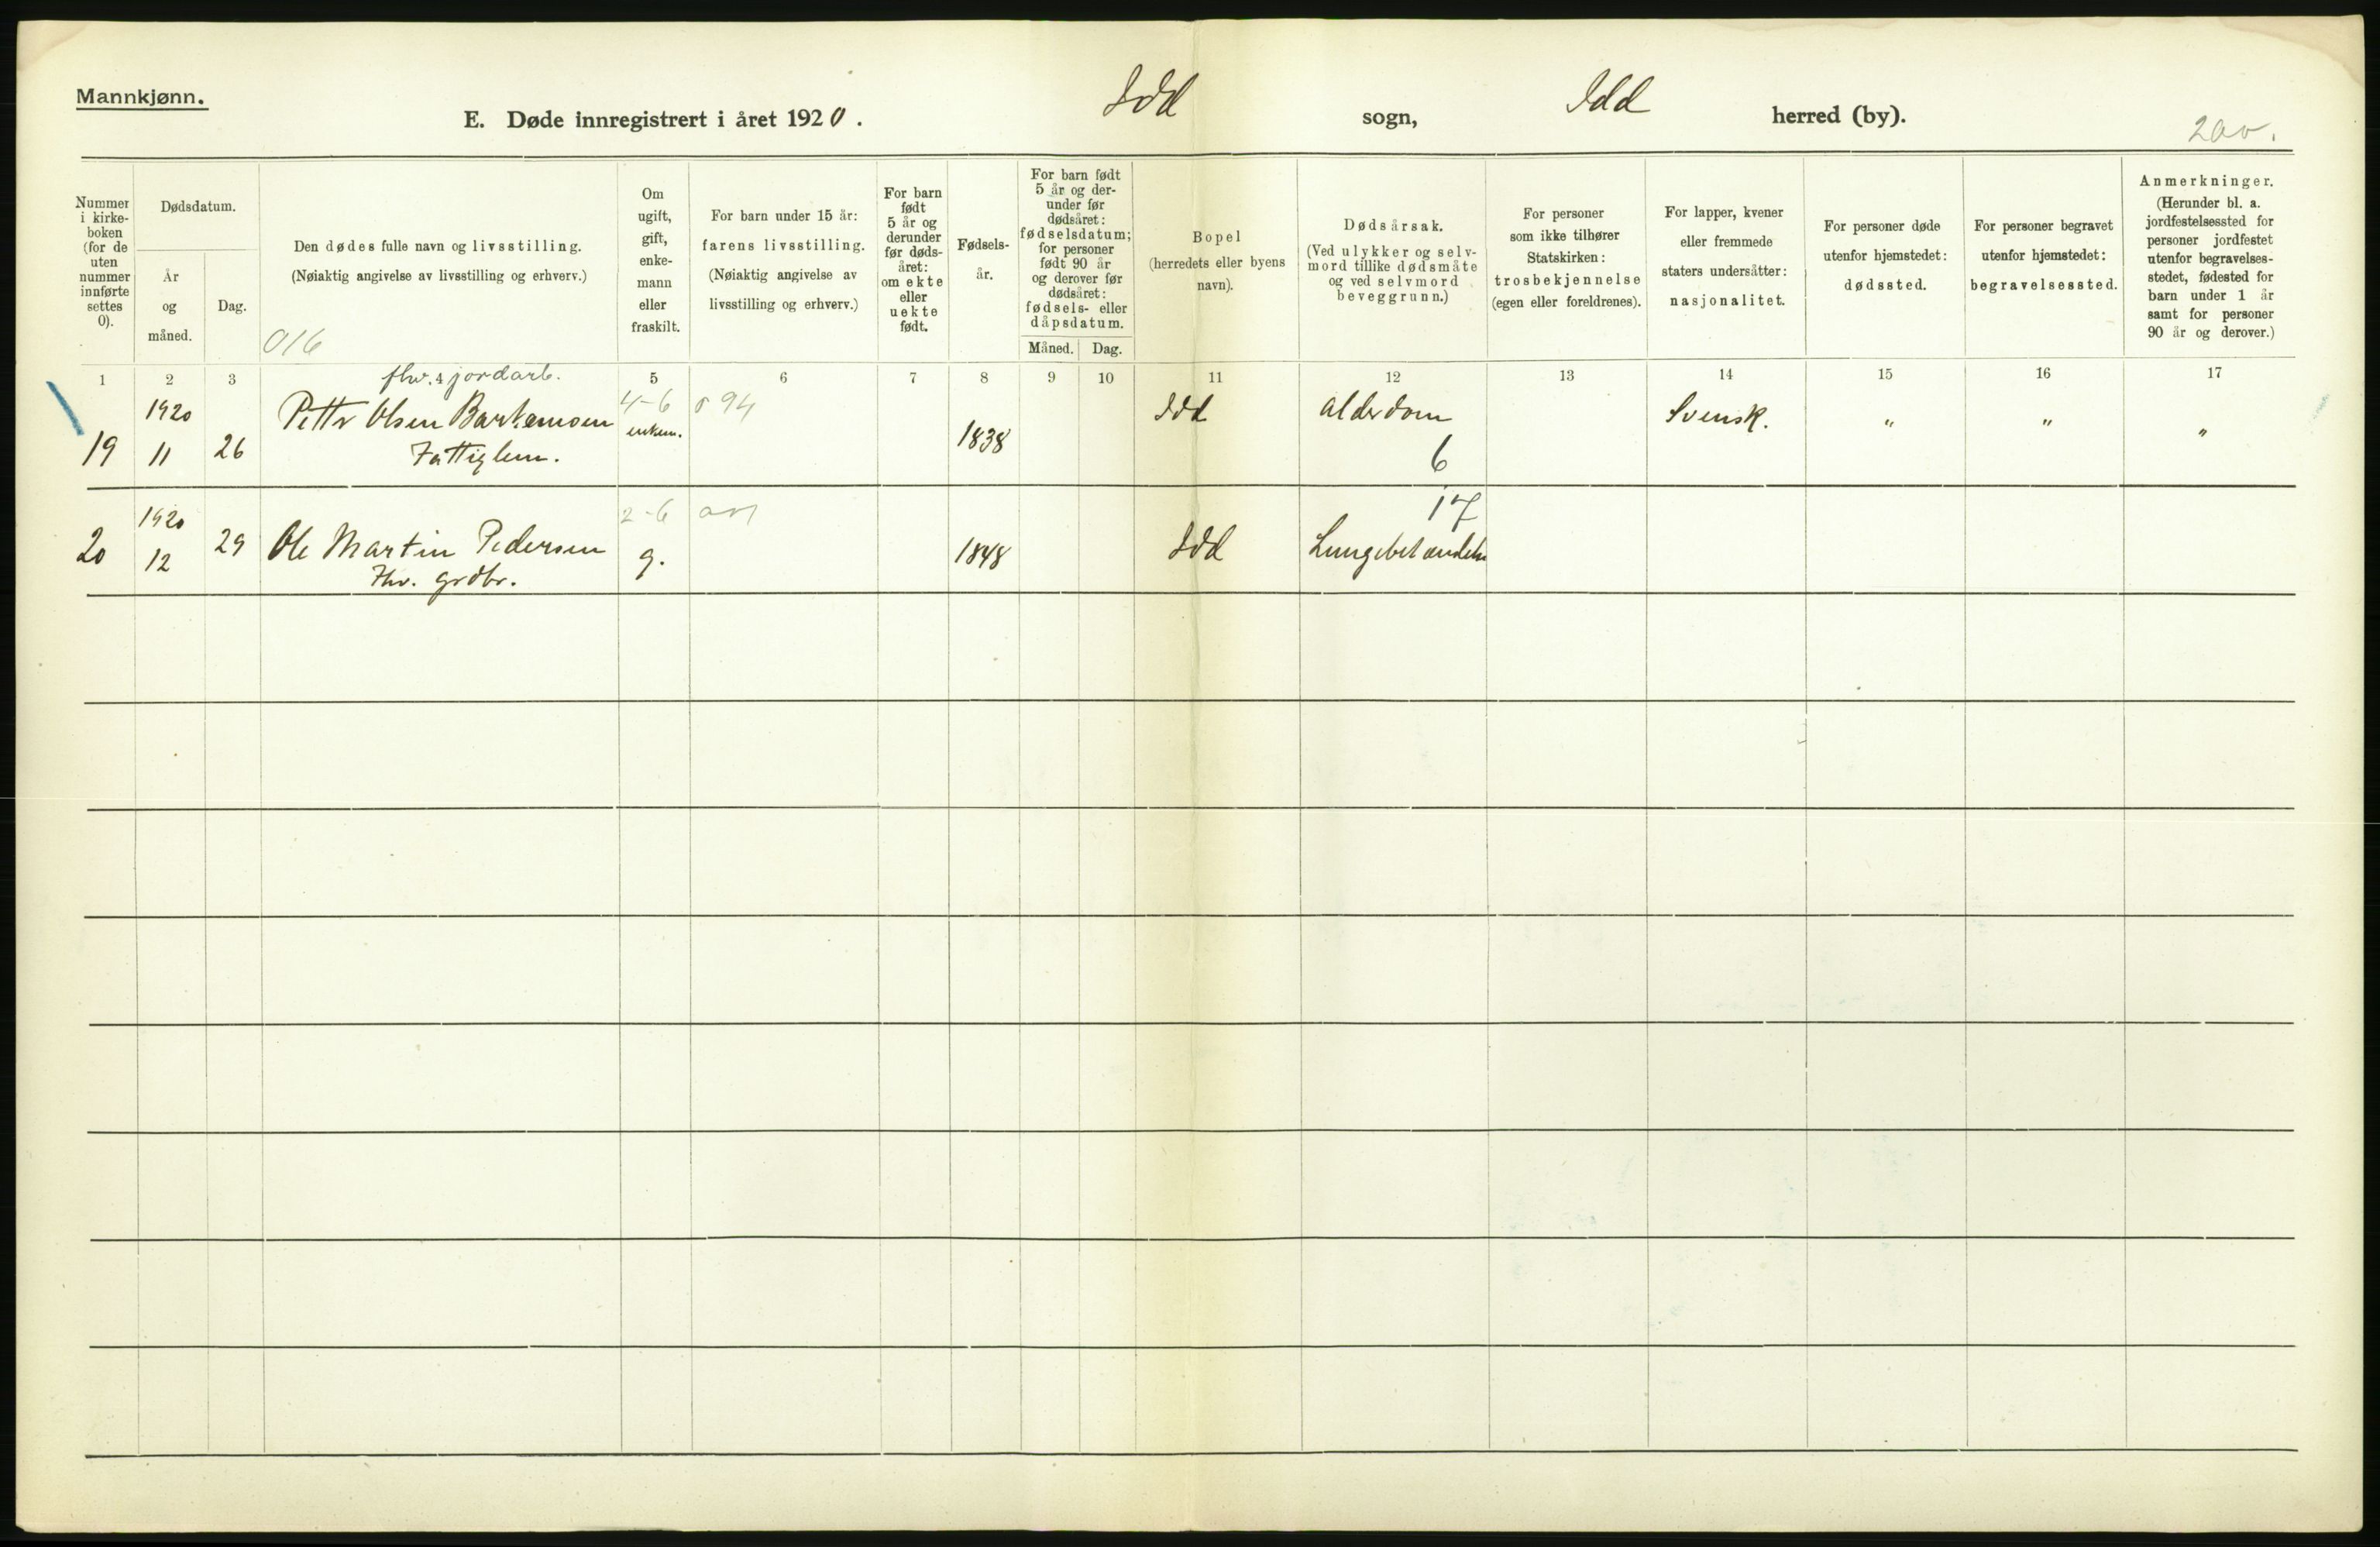 Mannkjønn.
E. Døde innregistrert i året 1920. Idd sogn, Idd herred (by).
200.
Nummer i kirke- boken (for de uten nummer innførte settes 0).
Dødsdatum.
År og måned.
Dag.
Den dødes fulle navn og livsstilling.
(Nøiaktig angivelse av livsstilling og erhverv.)
016
Om ugift, gift, enke- mann eller fraskilt.
For barn under 15 år: farens livsstilling.
(Nøiaktig angivelse av livsstilling og erhverv.)
For barn født 5 år og derunder før døds- året: om ekte eller uekte født.
Fødsels- år.
For barn født 5 år og der- under før dødsåret: fødselsdatum; for personer født 90 år og derover før dødsåret: fødsels- eller dåpsdatum.
Måned. Dag.
Bopel (herredets eller byens navn).
Dødsårsak.
(Ved ulykker og selv- mord tillike dødsmåte og ved selvmord beveggrunn.)
For personer som ikke tilhører Statskirken: trosbekjennelse (egen eller foreldrenes).
For lapper, kvener eller fremmede staters undersåtter: nasjonalitet.
For personer døde utenfor hjemstedet: dødssted.
For personer begravet utenfor hjemstedet: begravelsessted.
Anmerkninger.
(Herunder bl. a. jordfestelsessted for personer jordfestet utenfor begravelses- stedet, fødested for barn under 1 år samt for personer 90 år og derover.)
1 2 3 5 6 7 8 9 10 11 12 13 14 15 16 17
fhv. jordarb.
1920 Petter Olsen 4-6 94 Idd Alderdom Svensk. " " "
19 11 26 Fattiglem. enkem. 1838 6
1920 2-6 17
20 12 29 Ole Martin Pedersen g. 1848 Idd Lungebetændelse
Fhv. grdbr.